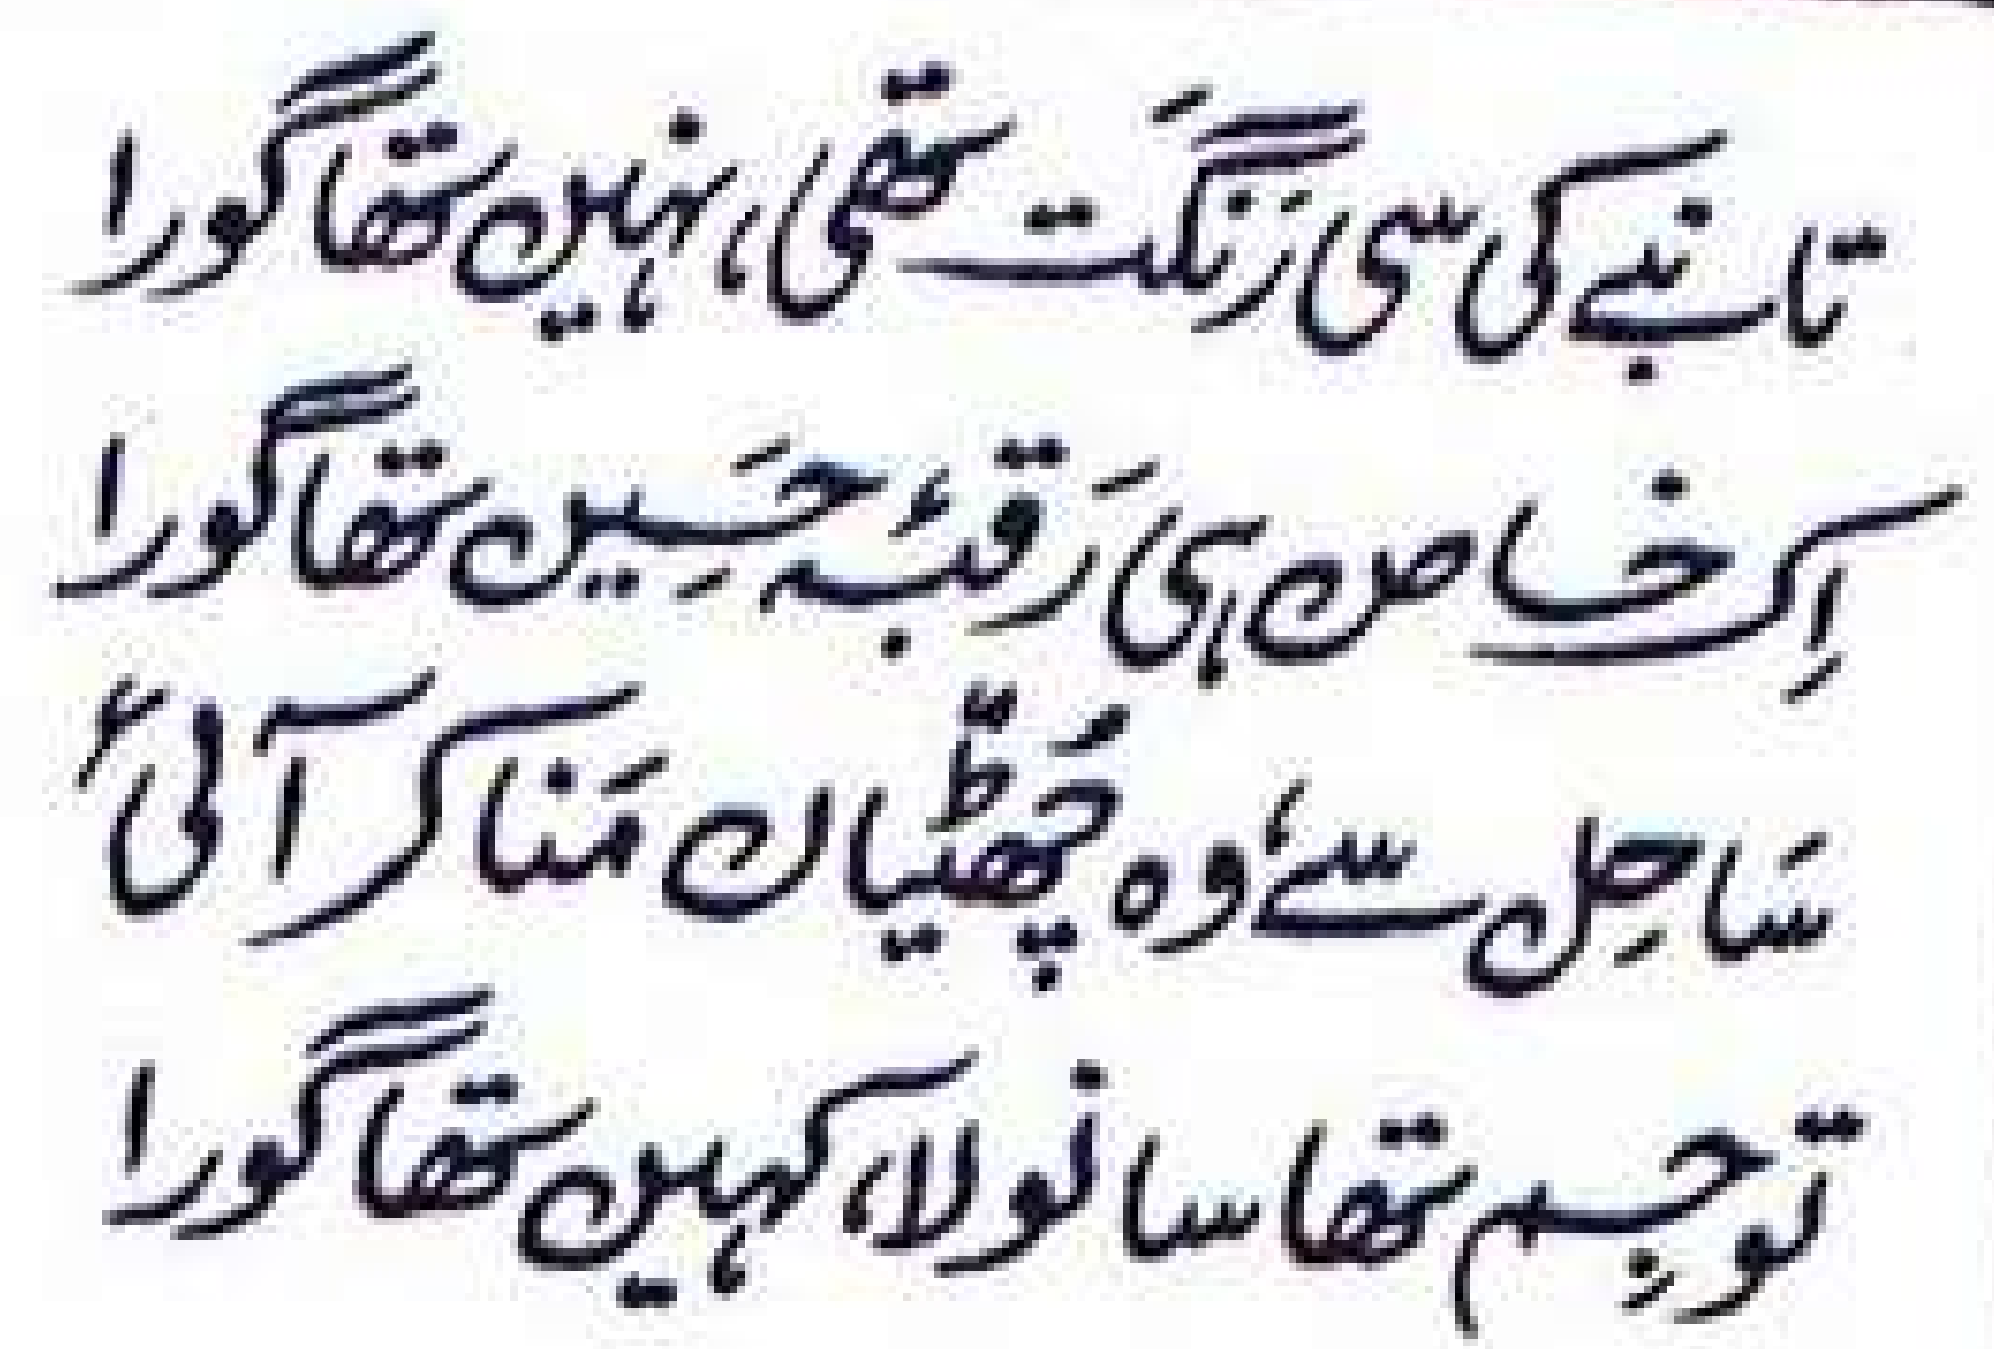 تانبے کی سی رَنگَت تھی، نہیں تھا گورا
اِک خاص ہی رَقبۂ حَسِیں تھا گورا
سَاحِل سے وہ چُھٹّیاں مَنا کر آئی
تو جِسم تھا سانولا، کہیں تھا گورا